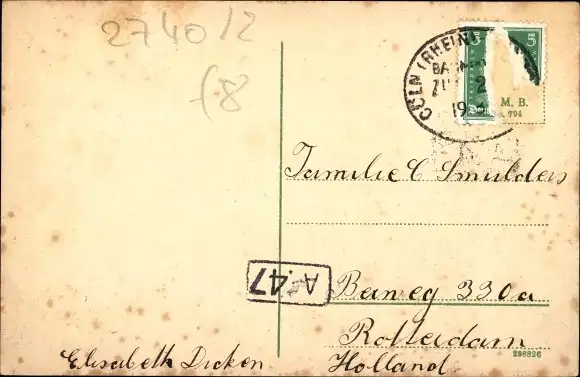 2740/2
f8
CÖLN (RHEIN)
BA
2
19
5 5
M. B.
794
Familie C Smulders
A.47
Beiweg 330a
Rotterdam
Holland.
Elisabeth Dicken
298826